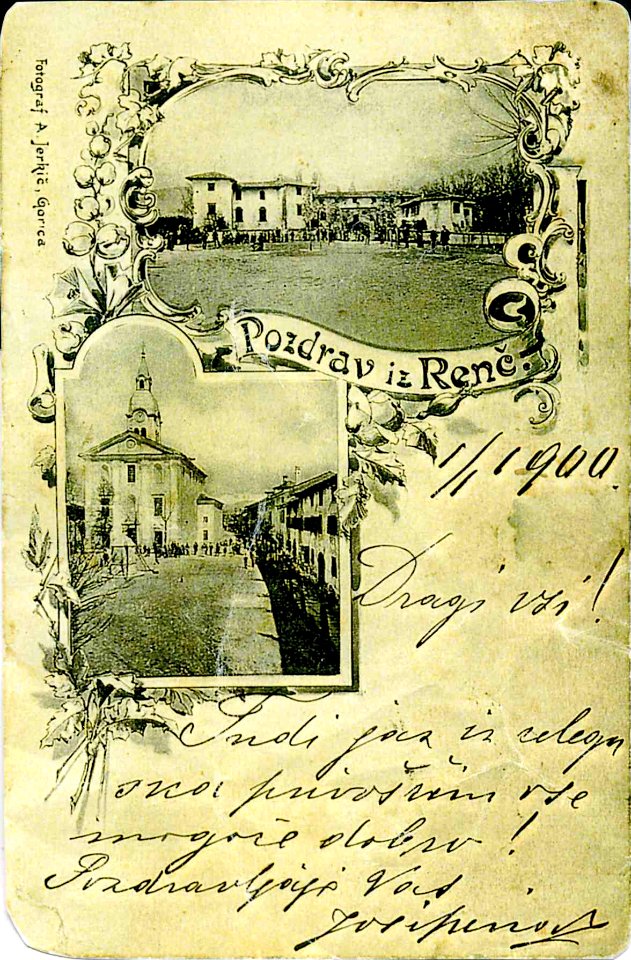 Fotograf A. Jerkič, Gorica
Pozdrav iz Renč.
1/1 1900.
Dragi vsi!
Tudi jaz iz celega
srca privoščim vse
mogoče dobro!
Pozdravljaje Vas
Josipina